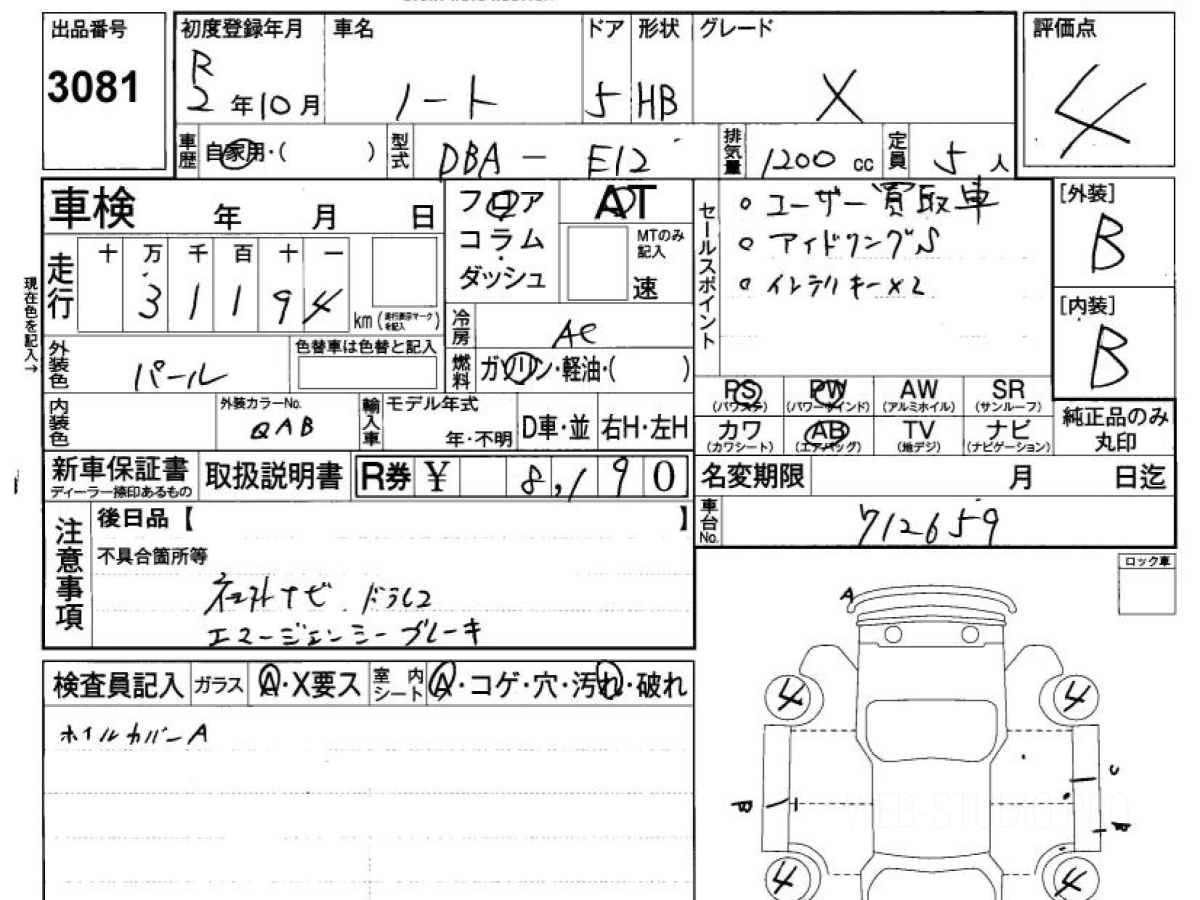 出品番号
3081
初度登録年月
R
2年10月
車名
ノート
ドア
5
形状
HB
グレード
X
評価点
4
車歴
自家用・( )
型式
DBA - E12
排気量
1200 cc
定員
5人
車検
年 月 日
走行
十 万 千 百 十 一
3 1 1 9 4
km (走行表示マークを記入)
現在色を記入→
外装色
パール
色替車は色替と記入
内装色
外装カラーNo.
QAB
輸入車
モデル年式
年・不明
D車・並
右H・左H
フロア
コラム
ダッシュ
AT
MTのみ
記入
速
冷房
AC
燃料
ガソリン・軽油・( )
セールスポイント
ユーザー買取車
アイドリングS
インテリキー×2
[外装]
B
[内装]
B
PS
(パワステ)
PW
(パワーウインド)
AW
(アルミホイル)
SR
(サンルーフ)
カワ
(カワシート)
AB
(エアバッグ)
TV
(地デジ)
ナビ
(ナビゲーション)
純正品のみ
丸印
新車保証書
ディーラー捺印あるもの
取扱説明書
R券 ¥ 8,190
名変期限
月 日迄
車台No.
712659
注意事項
後日品【 】
不具合箇所等
社外ナビ ドラレコ
エマージェンシーブレーキ
ロック車
検査員記入
ガラス
A・X要ス
室内
シート
A・コゲ・穴・汚れ・破れ
ホイルカバーA
A
4
4
B
C
B
4
4
WEB-STUDIO.PRO